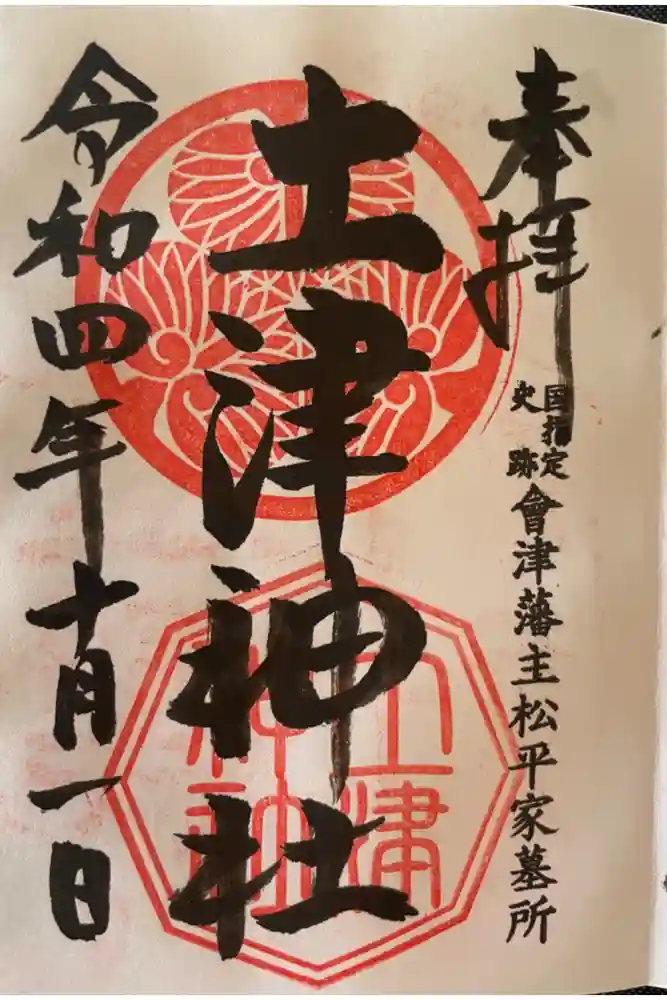 奉拝
国指定
史跡
會津藩主松平家墓所
土津神社
土津
神社
令和四年十月一日